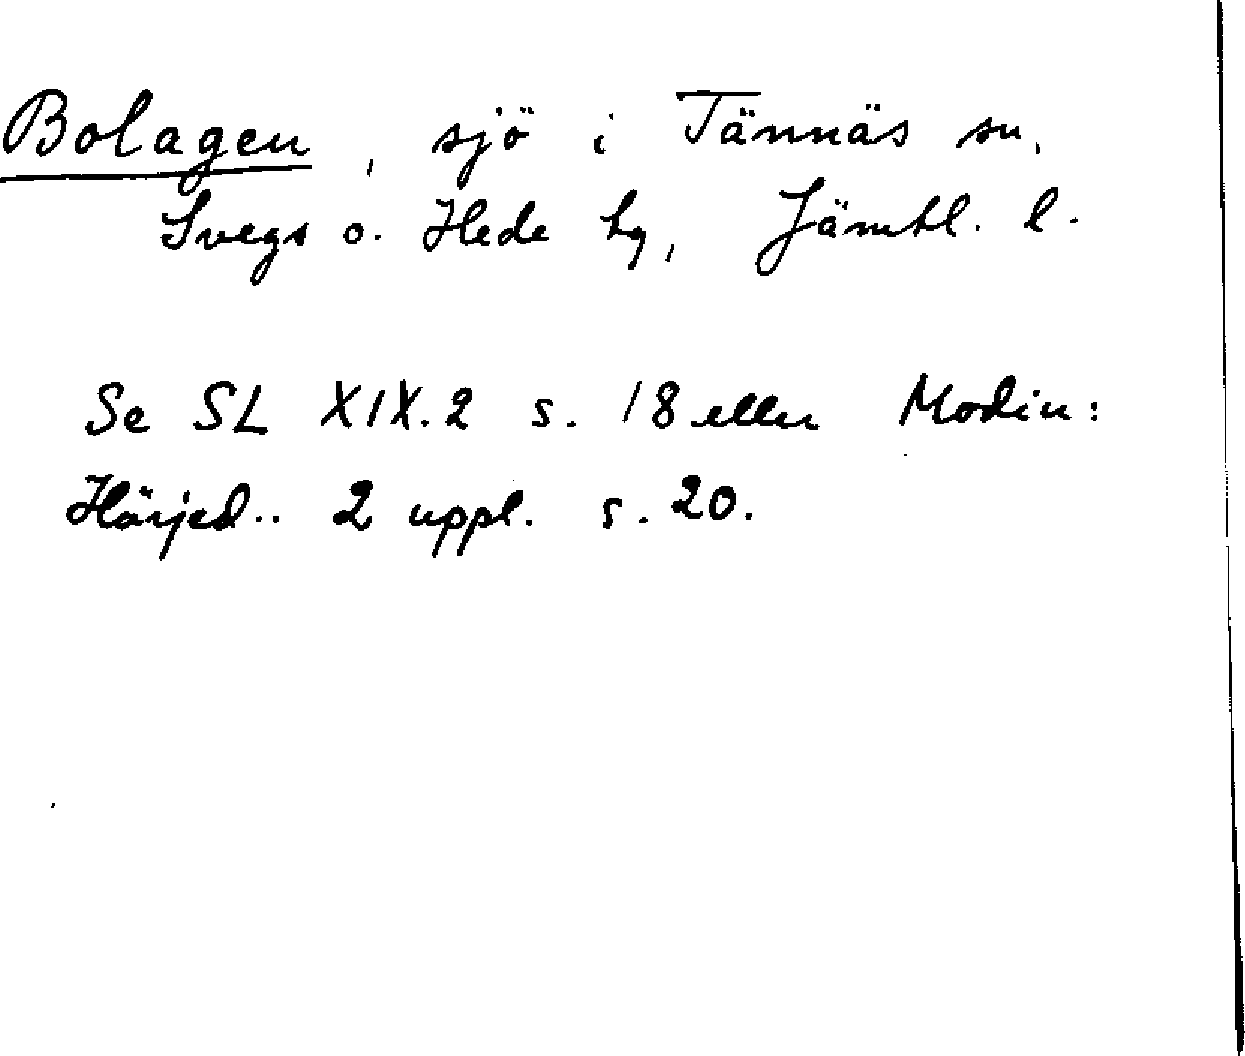 Bolagen, sjö i Tännäs sn,
Svegs o. Hede hg, Jämtl. l.
Se SL XIX.2 s. 18 eller Modin:
Härjed.. 2 uppl. s. 20.